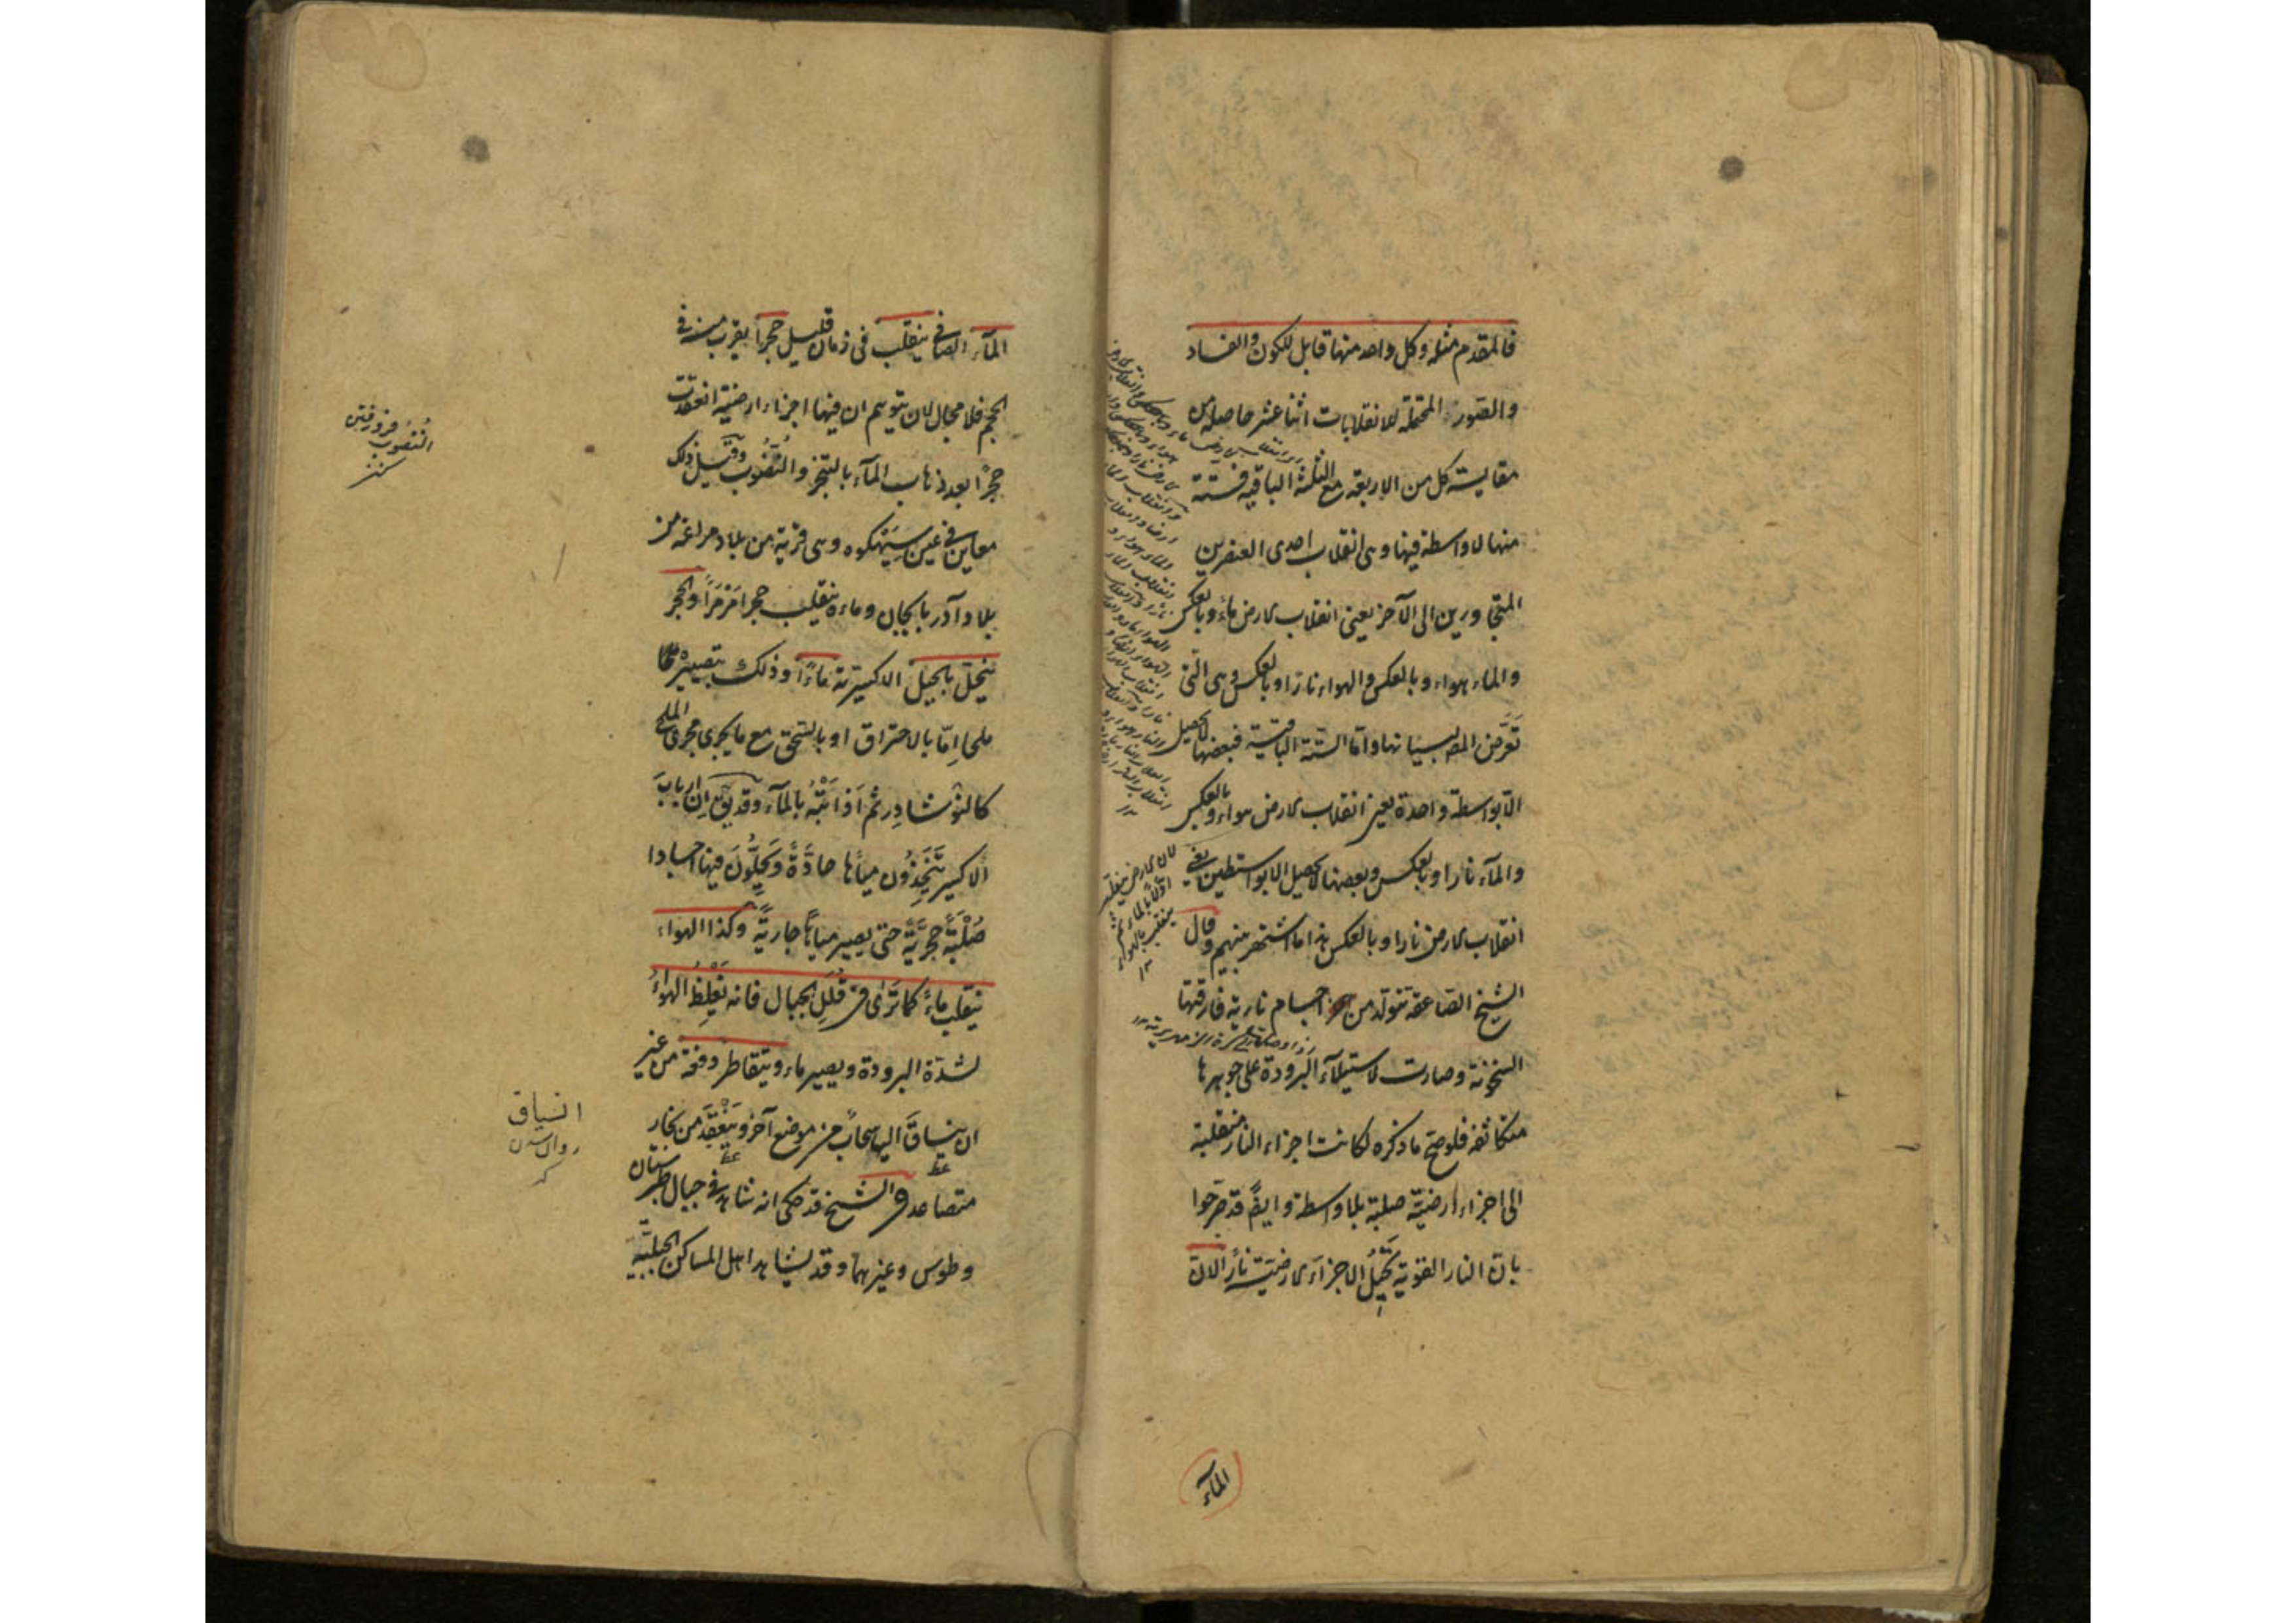 فالمقدم مثله وكل واحد منها قابل للكون والفساد
والصور المحتملة للانقلابات اثنا عشر حاصلة من
مقايسة كل من الاربعة مع الثلثة الباقية فستة
منها لا واسطة فيها وهى انقلاب احدى العنصرين
المتجاورين الى الآخر يعنى انقلاب الارض ماء وبالعكس
والماء هواء وبالعكس والهواء نارا وبالعكس وهى التى
تعرض المص لبيانها واما الستة الباقية فبعضها لا يحصل
الا بواسطة واحدة يعنى انقلاب الارض هواء وبالعكس
والمآء نارا وبالعكس وبعضها لا يحصل الا بواسطتين يعنى
انقلاب الارض نارا وبالعكس هذا ما اشتهر بينهم وقال
الشيخ الصاعقة تتولد من اجسام نارية فارقتها
السخونة وصارت لاستيلآء البرودة على جوهرها
متكاثفة فلو صح ما ذكره لكانت اجزاء النار منقلبة
الى اجزاء ارضية صلبة بلا واسطة وايضً قد صرحوا
بان النار القوية تحيل الاجزآء الارضية نارًا لان
المآء
المآء الصافى ينقلب فى زمان قليل حجرا يقرب منه فى
الحجم فلا مجال لان يتوهم ان فيها اجزاء ارضية انعقدت
حجرًا بعد ذهاب المآء بالتبخر والنُّضُوب وقيل ذلك
معاين فى عين سيهكوه وهى قرية من بلاد مراغه من
بلاد آذربايجان وماءه ينقلب حجرا مرمرًا والحجر
ينحل بالحيل الاكسيرية ماءً وذلك بتصييرها
ملحا اِمّا بالاحتراق او بالسحق مع ما يجرى مجرى الملح
كالنوشادِر ثم اذابته بالمآء وقد يق ان ارباب
الاكسير يتخذون مياها حادّةً ويحلّون فيها اجسادا
صُلْبَةً حجريّةً حتى يصير مياهًا جاريةً وكذا الهواء
ينقلب ماءً كما تَرٰى فى قُلَلِ الجبال فانه يَغْلِظُ الهواءُ
لشدّة البرودة ويصير ماء ويتقاطر دفعة من غير
ان ينساق اليها سحابٌ من موضع آخر وينعقد من بخار
متصاعد والشيخ قد حكى انه شاهد فى جبال طبرستان
وطوس وغيرهما وقد يشاهد اهل المساكن الجبلية
النضوب فرو رفتن
كنز
انسياق
روان شدن